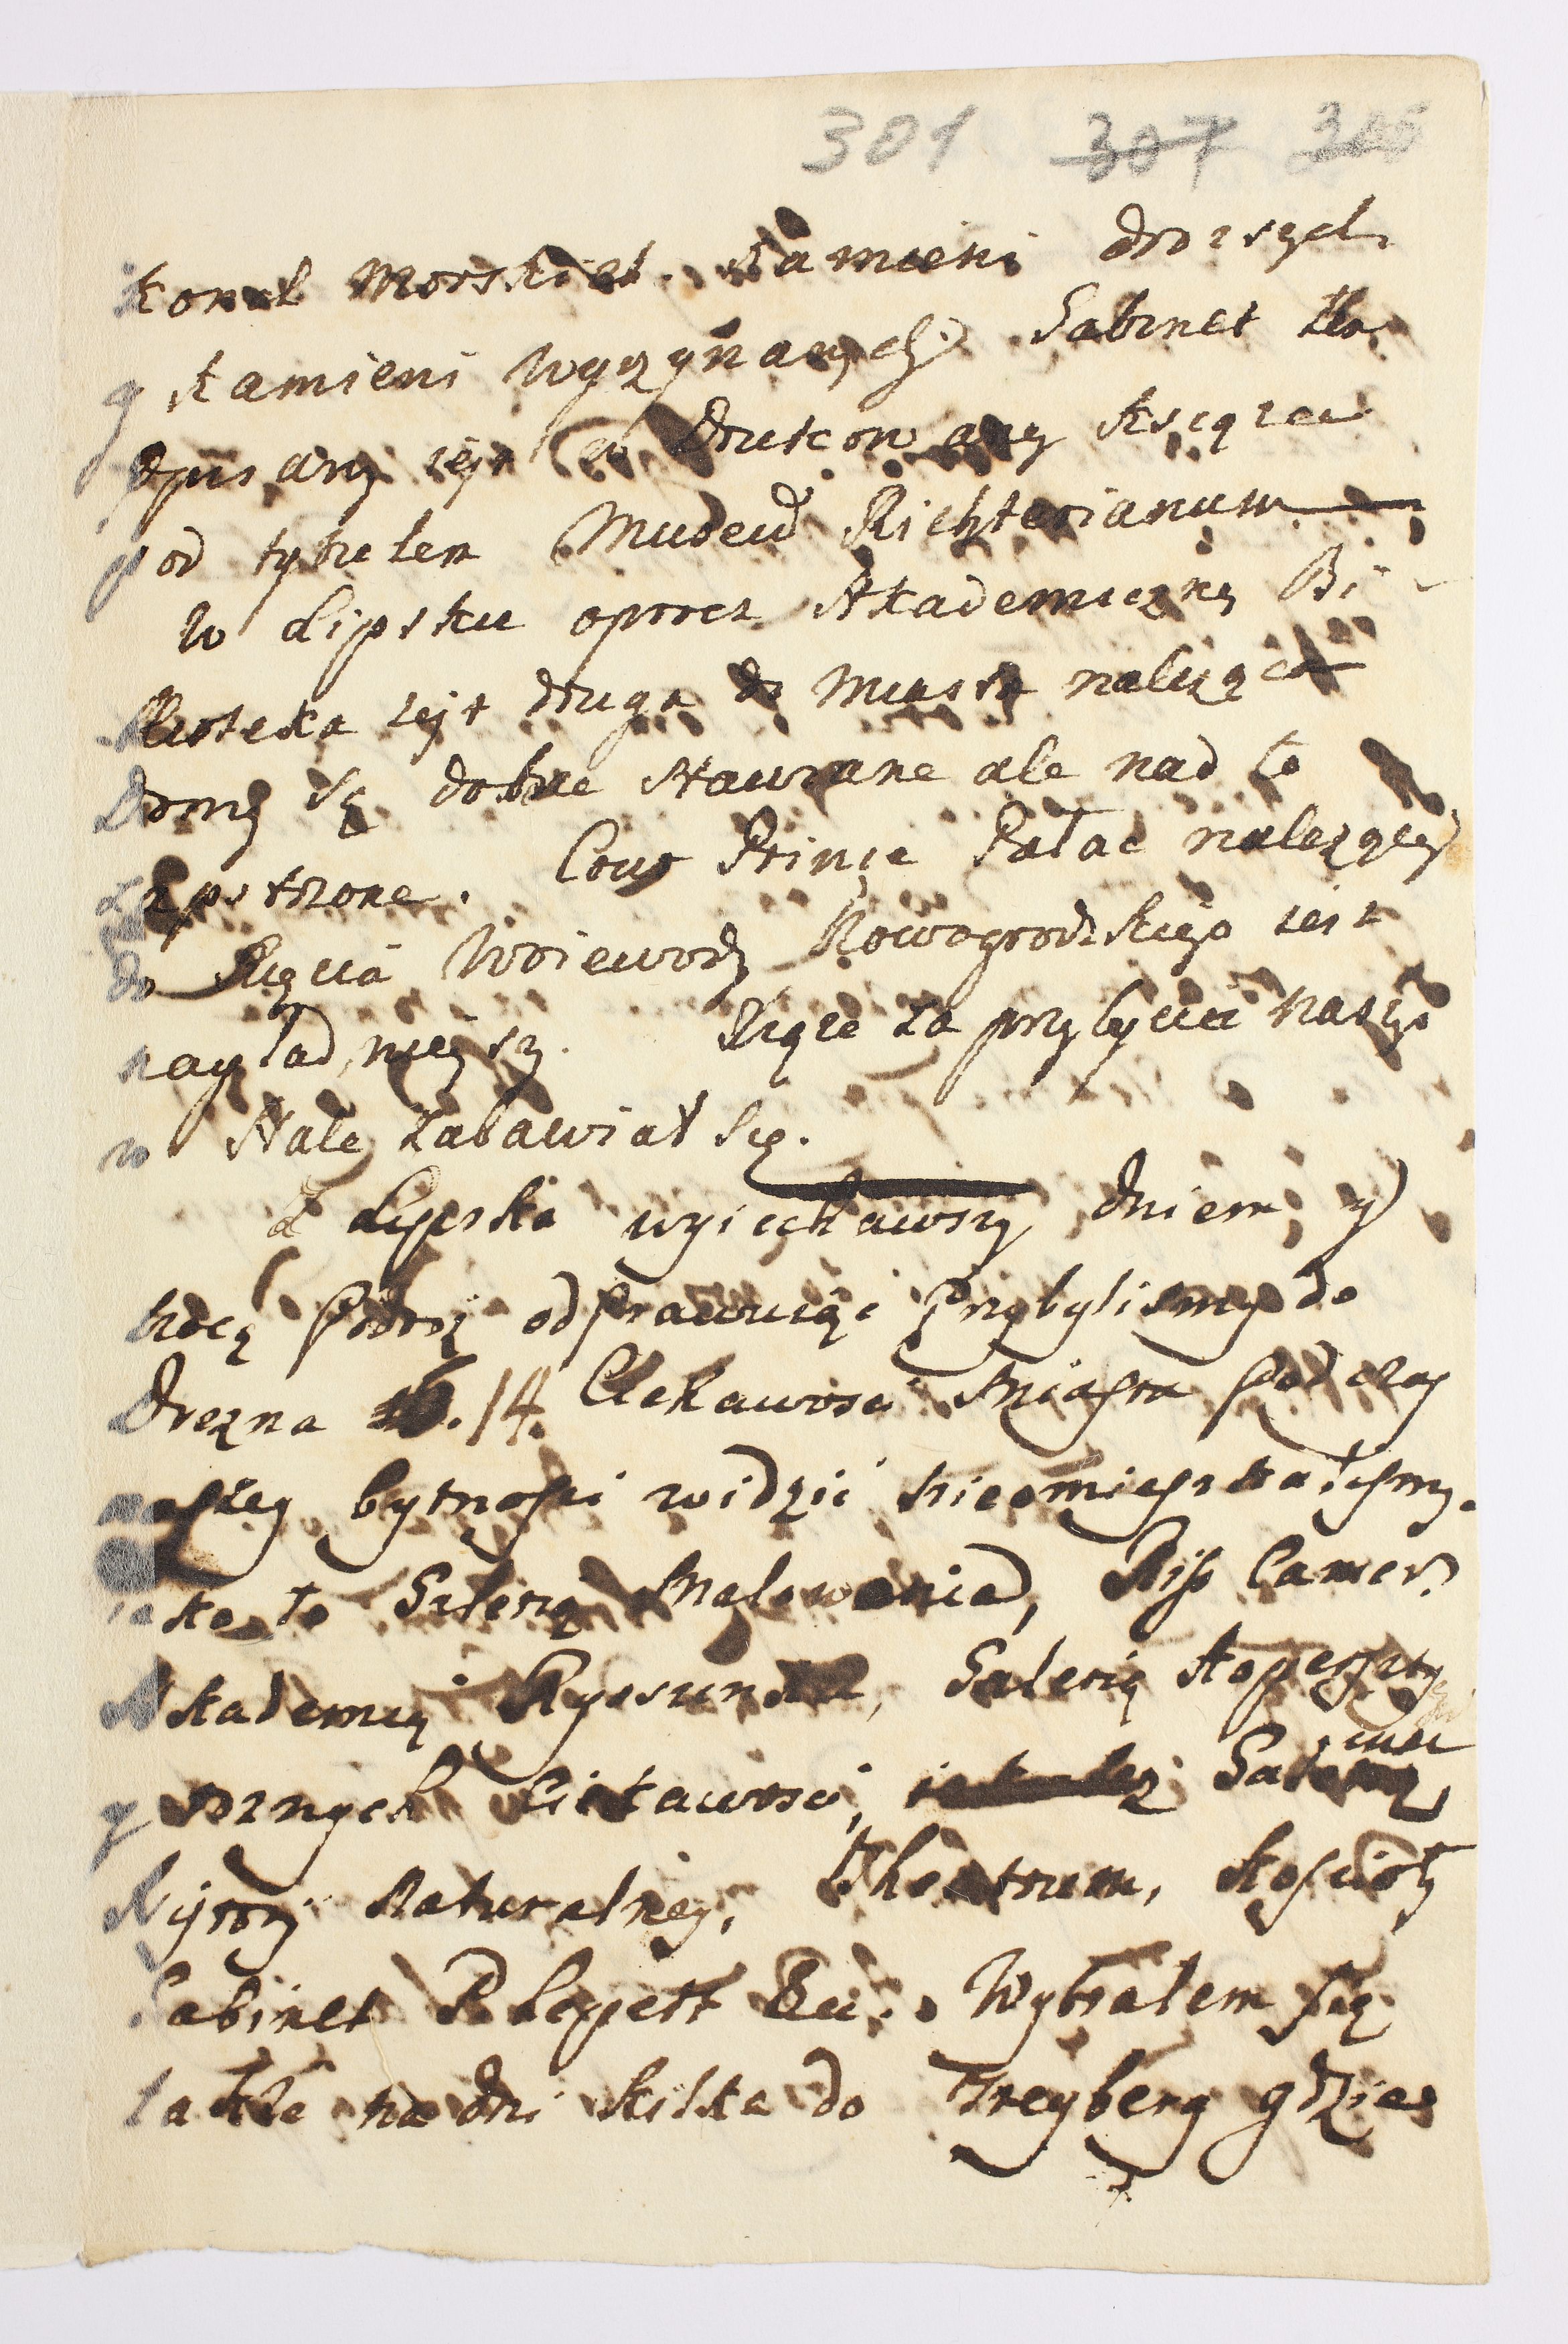 301 307 306
Konch Morskich. Kamieni droższych
y Kamieni wyrzynanych. Gabinet ten
Opisany iest w DrukowaneyKsiązce
pod tytułem Museum Richterianum
w Lipsku oprocz Akademiczney Bi
blioteka iest druga do Miasta naliząca
Domy są dobrze stawiane ale nad to
pstrzone. Cour Prince Pałac nalezący
do Xięcia Woiewody Nowogrodzkiego iest
nayładnieyszy. Xiąze za przybycia naszego
w Hale zabawiał się.
Z Lipska wyiechawszy dniem y
nocą podroż odprawuiąc przybylismy do
Drezna 14. Ciekawosci Miasta podczas
naszey bytnosci widzieć nieomieszkałismy.
iako to Galerią Malowania, Rist Camer.
Akademią Ryssunku, Galerią Kopersztych
y roznych Ciekawosci,
Hystory Naturalney, Theatrum, Kościoły
Gabinet P. Lippert &c. Wybrałem się
także na dni kilka do Freyberg gdzie